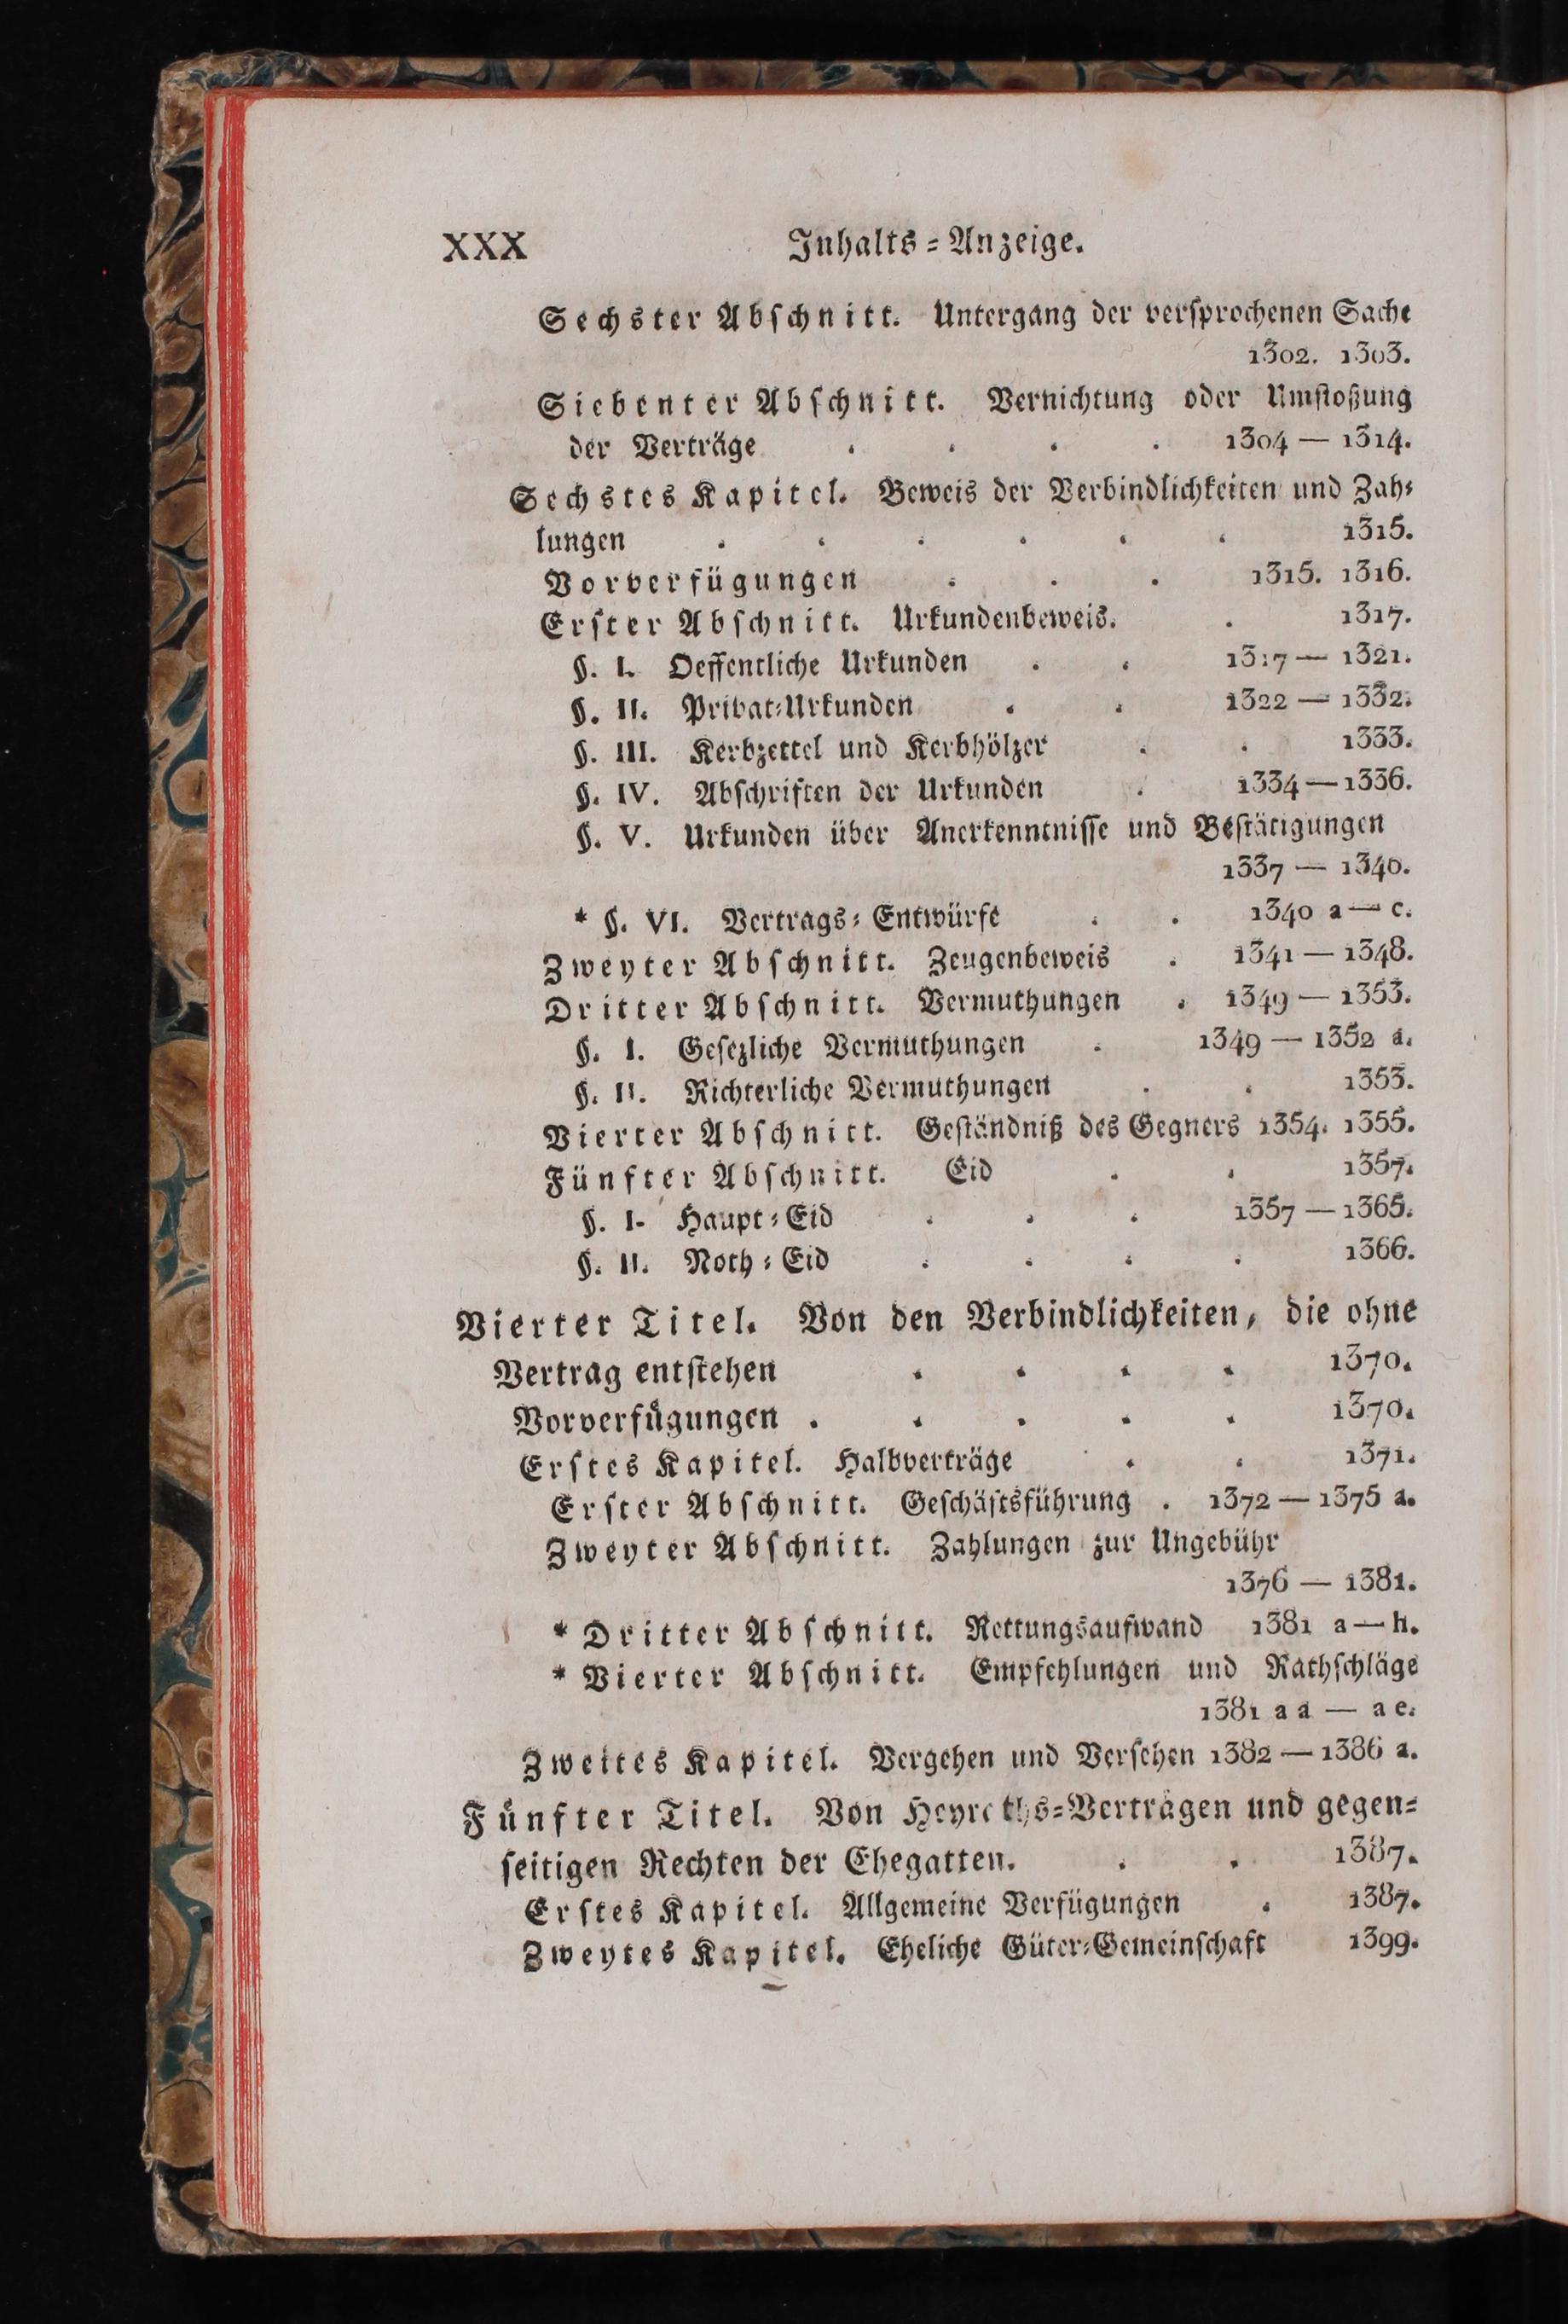 XXX Inhalts=Anzeige.
Sechster Abschnitt. Untergang der versprochenen Sache
1302. 1303.
Siebenter Abschnitt. Vernichtung oder Umstoßung
der Verträge . . . . 1304 — 1314.
Sechstes Kapitel. Beweis der Verbindlichkeiten und Zah=
lungen . . . . . . 1315.
Vorverfügungen . . . 1315. 1316.
Erster Abschnitt. Urkundenbeweis. . 1317.
§. I. Oeffentliche Urkunden . . 1317 — 1321.
§. II. Privat=Urkunden . . 1322 — 1332.
§. III. Kerbzettel und Kerbhölzer . . 1333.
§. IV. Abschriften der Urkunden . 1334 — 1336.
§. V. Urkunden über Anerkenntnisse und Bestätigungen
1337 — 1340.
* §. VI. Vertrags=Entwürfe . . 1340 a — c.
Zweyter Abschnitt. Zeugenbeweis . 1341 — 1348.
Dritter Abschnitt. Vermuthungen . 1349 — 1353.
§. I. Gesezliche Vermuthungen . 1349 — 1352 a.
§. II. Richterliche Vermuthungen . . 1353.
Vierter Abschnitt. Geständniß des Gegners 1354. 1355.
Fünfter Abschnitt. Eid . . 1357.
§. I. Haupt=Eid . . . 1357 — 1365.
§. II. Noth=Eid . . . . 1366.
Vierter Titel. Von den Verbindlichkeiten, die ohne
Vertrag entstehen . . . . 1370.
Vorverfügungen . . . . . 1370.
Erstes Kapitel. Halbverträge . . 1371.
Erster Abschnitt. Geschäftsführung . 1372 — 1375 a.
Zweyter Abschnitt. Zahlungen zur Ungebühr
1376 — 1381.
* Dritter Abschnitt. Rettungsaufwand 1381 a — h.
* Vierter Abschnitt. Empfehlungen und Rathschläge
1381 a a — a e.
Zweites Kapitel. Vergehen und Versehen 1382 — 1386 a.
Fünfter Titel. Von Heyraths=Verträgen und gegen=
seitigen Rechten der Ehegatten. . . 1387.
Erstes Kapitel. Allgemeine Verfügungen . 1387.
Zweytes Kapitel. Eheliche Güter=Gemeinschaft 1399.